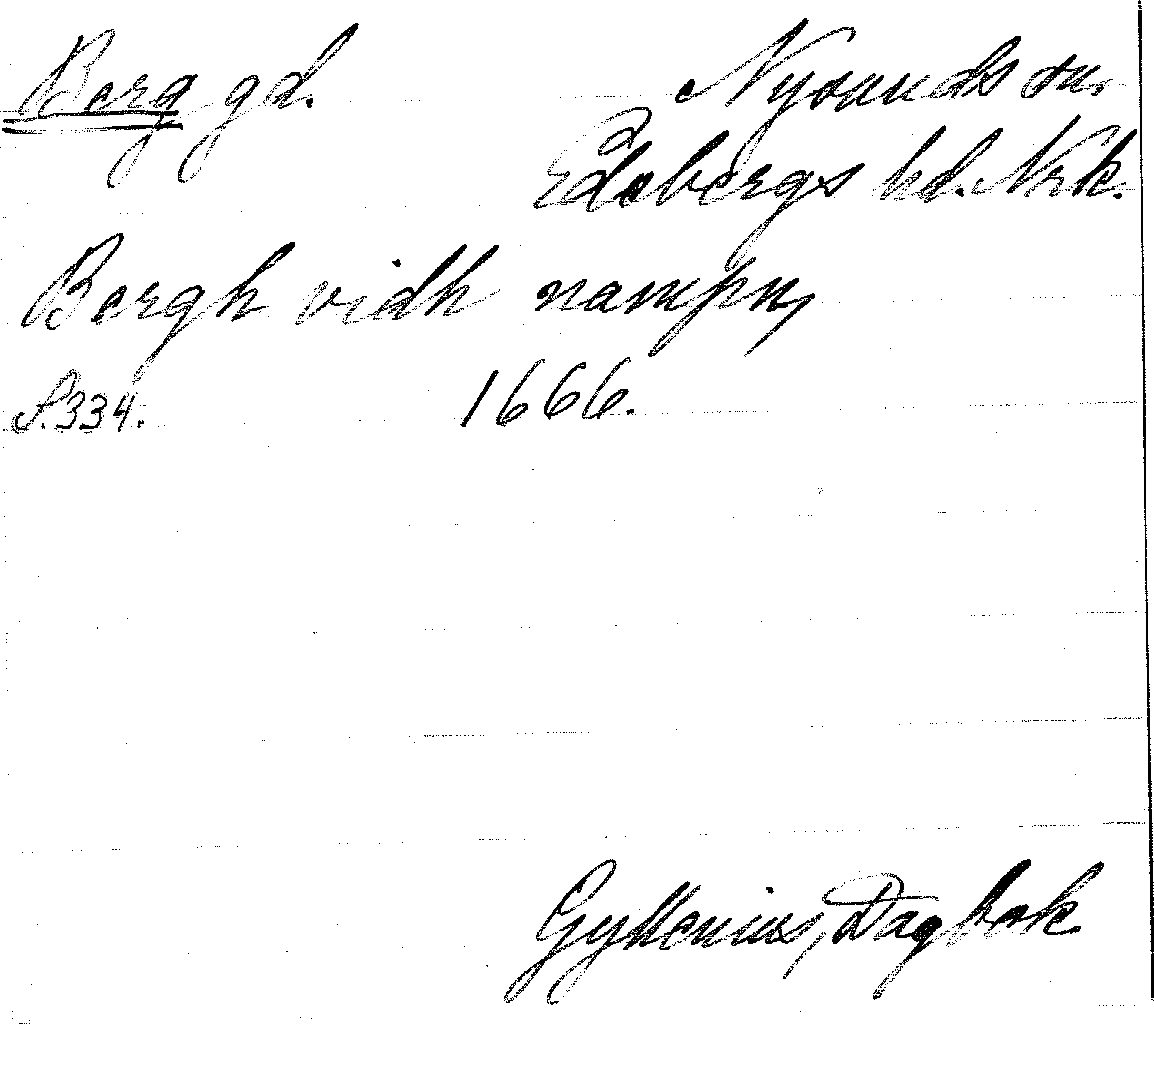 Berg gd. Nysunds sn.
Edsbergs hd. Nrk.
Bergh vidh nampn,
S. 334. 1666.
Gyllenius, Dagbok